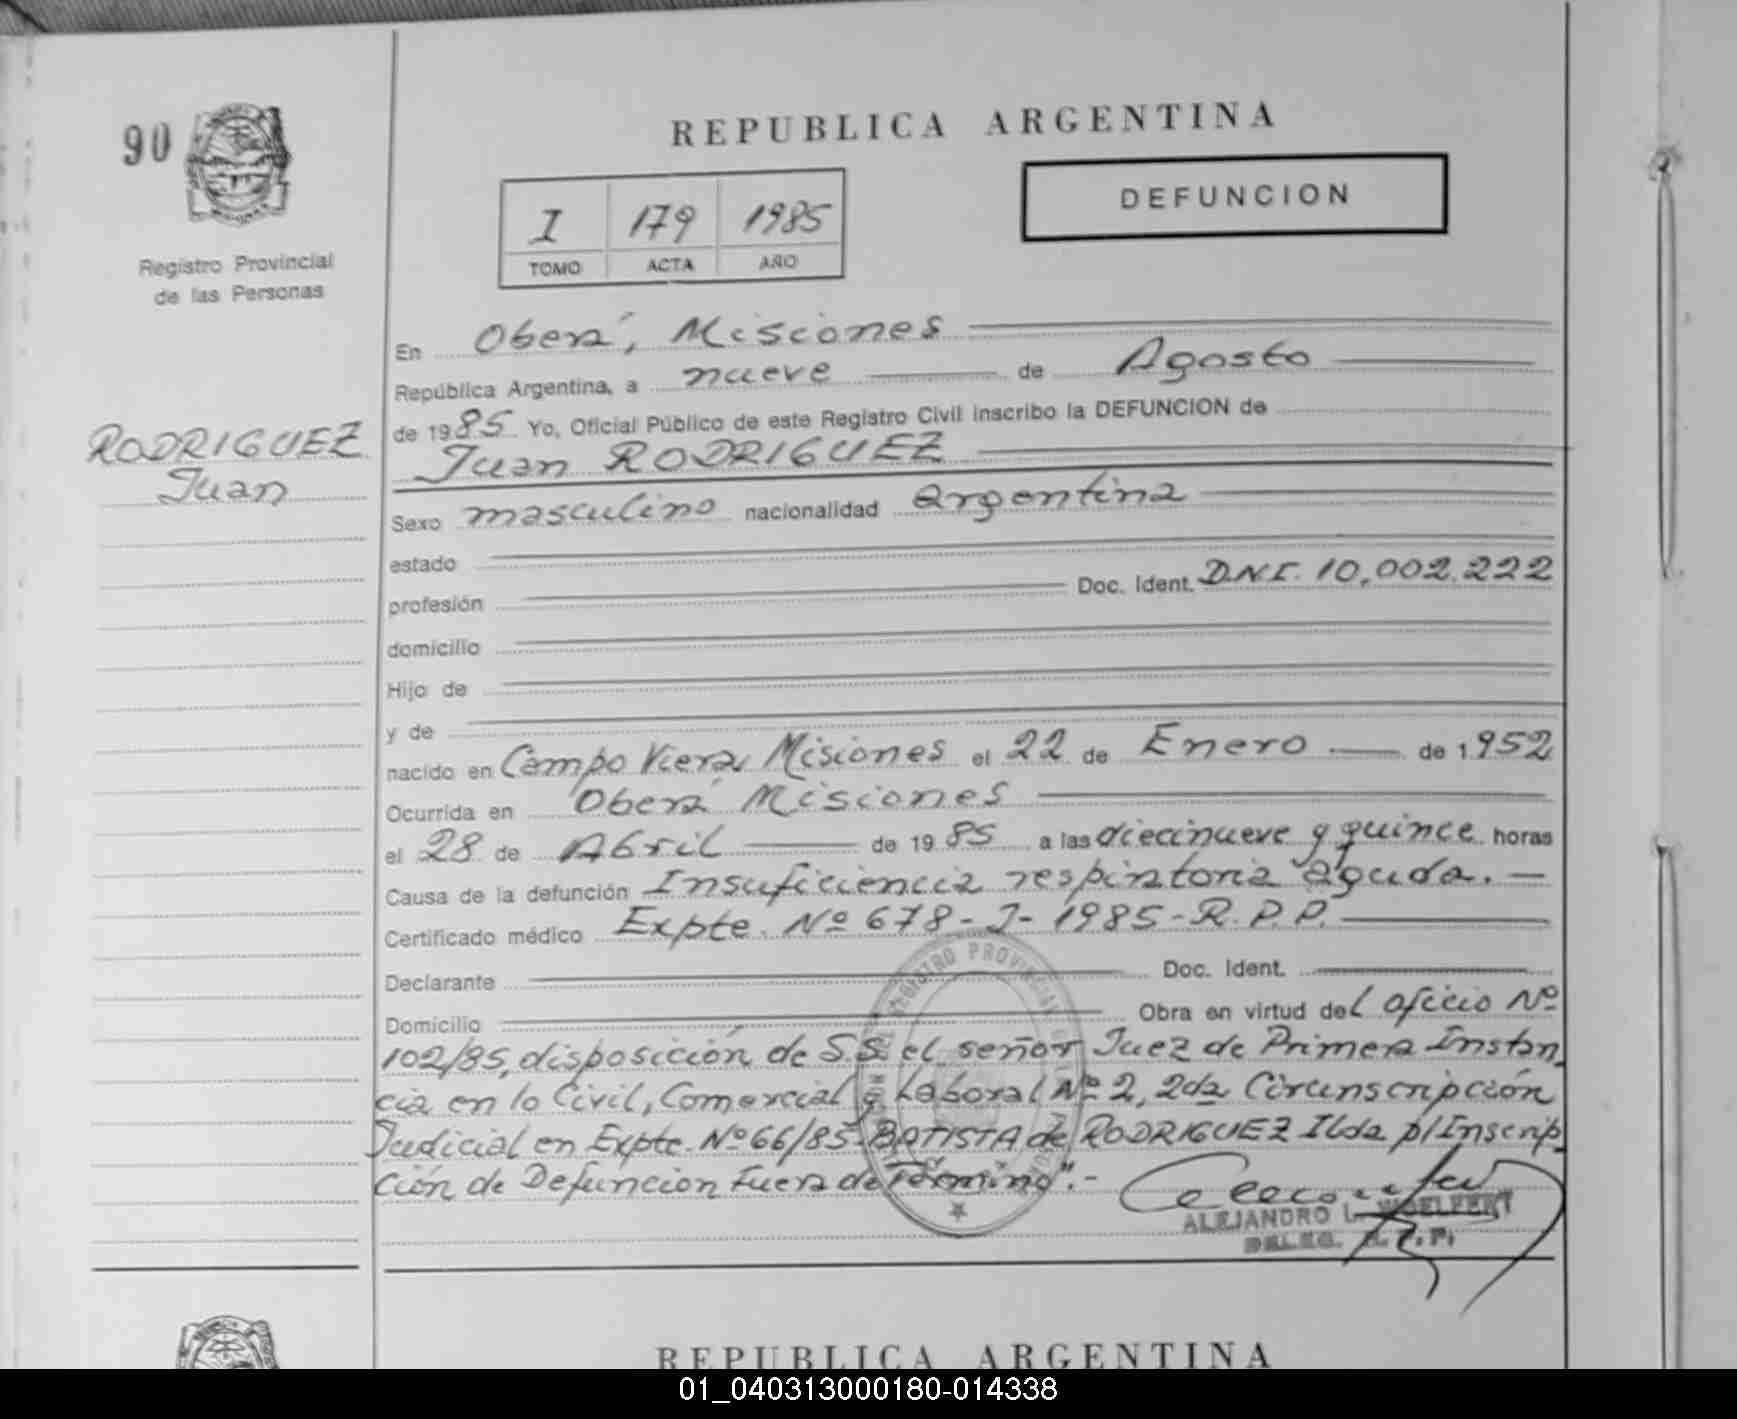 90
REPUBLICA ARGENTINA
DEFUNCION
I 179 1985
TOMO ACTA AÑO
Registro Provincial
de las Personas
RODRIGUEZ
Juan
En Oberá, Misiones
República Argentina, a nueve de Agosto
de 1985 Yo, Oficial Público de este Registro Civil inscribo la DEFUNCION de
Juan RODRIGUEZ
Sexo masculino nacionalidad argentina
estado
profesión Doc. Ident. D.N.I. 10.002.222
domicilio
Hijo de
y de
nacido en Campo Viera, Misiones el 22 de Enero de 1952
Ocurrida en Oberá Misiones
el 28 de Abril de 1985 a las diecinueve y quince horas
Causa de la defunción Insuficiencia respiratoria aguda.-
Certificado médico Expte. Nº 678-J-1985-R.P.P.
Declarante Doc. Ident.
Domicilio Obra en virtud del oficio Nº
102/85, disposición de S.S. el señor Juez de Primera Instan
cia en lo Civil, Comercial y Laboral Nº 2, 2da Circunscripción
Judicial en Expte. Nº 66/85 BATISTA de RODRIGUEZ Ilda p/Inscrip
ción de Defunción Fuera de Término".-
REGISTRO PROVINCIAL
ALEJANDRO L. WOELFERT
DELEG. R. P. P.
REPUBLICA ARGENTINA
01_040313000180-014338